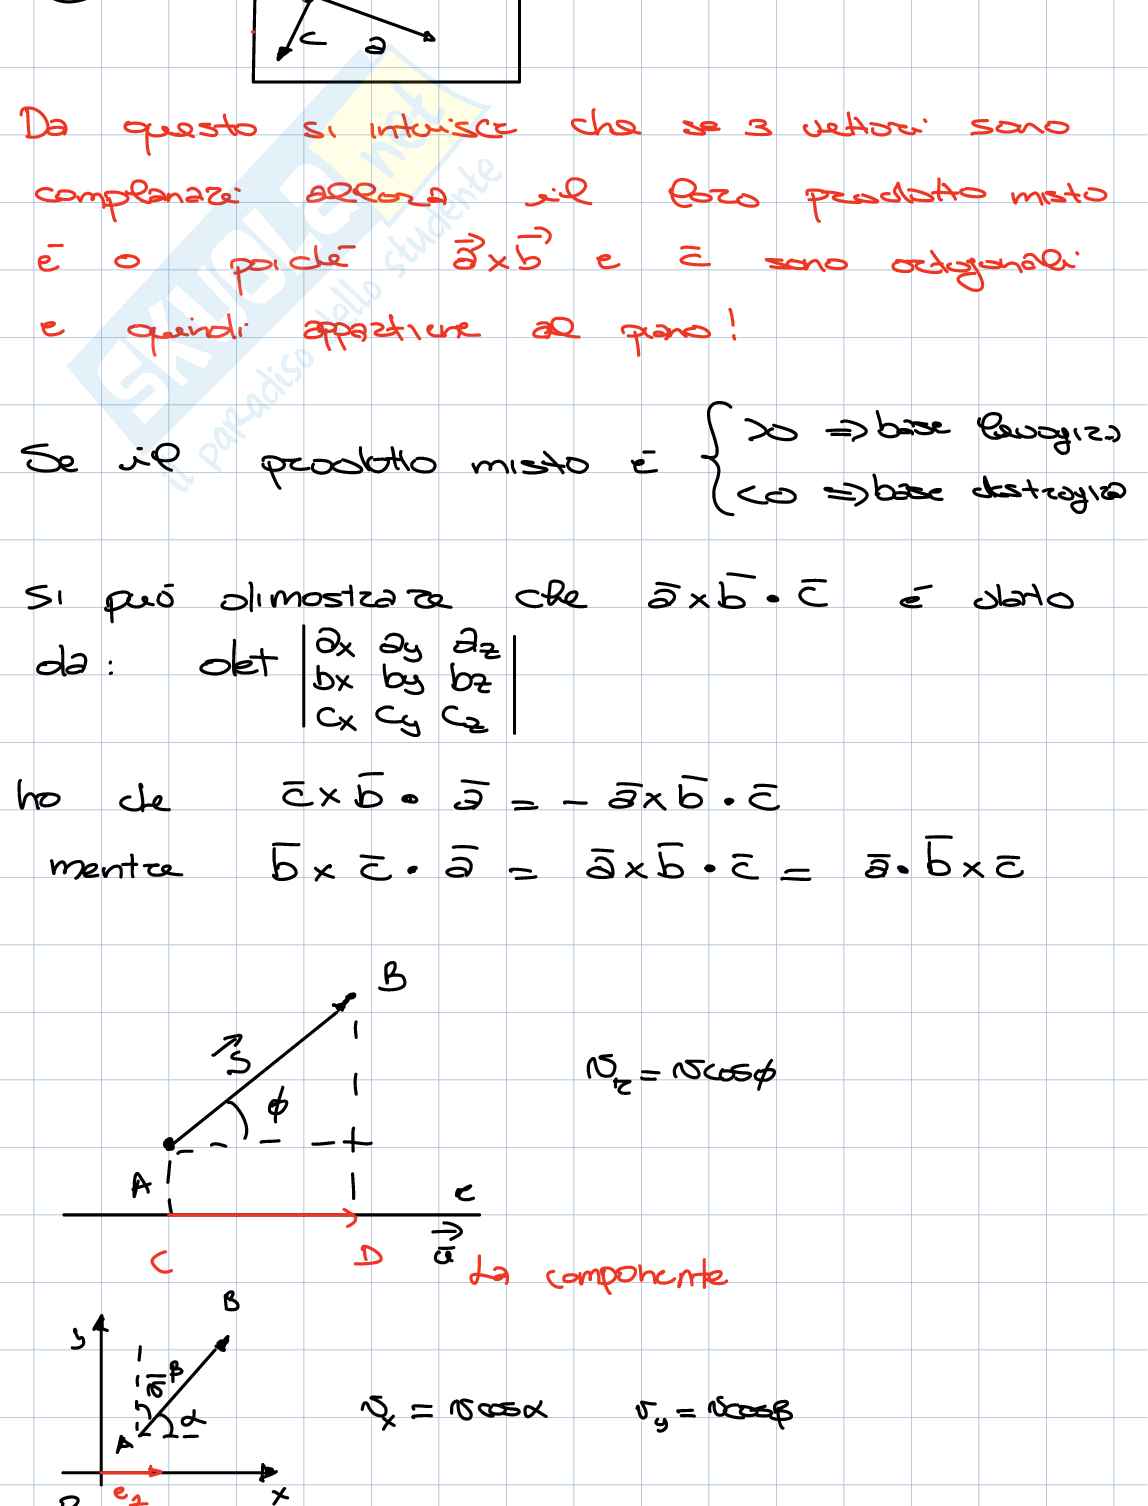 c a
Da questo si intuisce che se 3 vettori sono
complanari allora il loro prodotto misto
è 0 poiché a⃗×b⃗ e c̄ sono ortogonali
e quindi appartiene al piano!
Se il prodotto misto è { >0 ⇒ base levogira
<0 ⇒ base destrogira
Si può dimostrare che ā×b̄·c̄ è dato
da: det | ax ay az |
| bx by bz |
| cx cy cz |
ho che c̄×b̄·ā = -ā×b̄·c̄
mentre b̄×c̄·ā = ā×b̄·c̄ = ā·b̄×c̄
B
s⃗
ϕ
v_r = v cosϕ
A
r
C D u⃗ La componente
B
y
v̄ β
α
A
v_x = v cosα v_y = v cosβ
x
SKUOLA.net
il paradiso dello studente